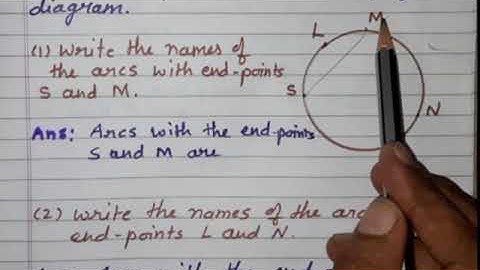 diagram.
(1) Write the names of
the arcs with end-points
S and M.
Ans: Arcs with the end-points
S and M are
(2) Write the names of the arc
end-points L and N.
L
M
S
N